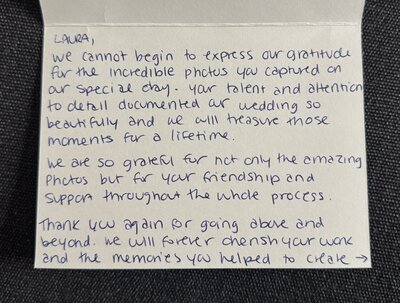 LAURA,
we cannot begin to express our gratitude
for the incredible photos you captured on
our special day. your talent and attention
to detail documented our wedding so
beautifully and we will treasure those
moments for a lifetime.
we are so grateful for not only the amazing
photos but for your friendship and
support throughout the whole process.
Thank you again for going above and
beyond. we will forever cherish your work
and the memories you helped to create →